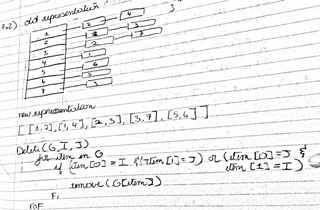 7.2) old representation
1 2 4
2 1 3
3 2 7
4 1
5 6
6 5
7 3
new representation
[ [1,2], [1,4], [2,3], [3,7], [5,6] ]
Delete (G, I, J)
for item in G
if (item[0] = I & item[1] = J) or (item[0] = J &
item[1] = I)
remove (G[item])
Fi
roF